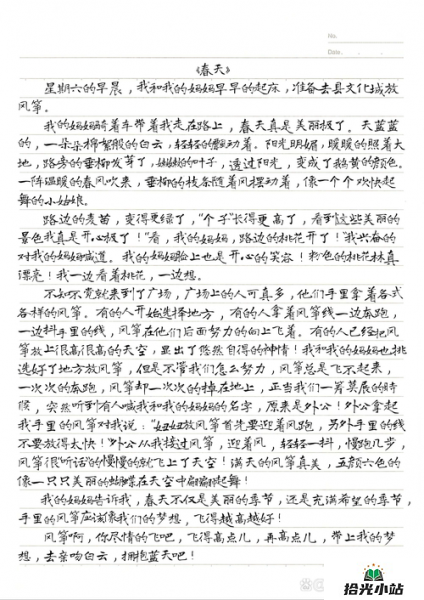 No.
Date.
《春天》
星期六的早晨，我和我的妈妈早早的起床，准备去县文化城放
风筝。
我的妈妈骑着车带着我走在路上，春天真是美丽极了。天蓝蓝
的，一朵朵棉絮般的白云，轻轻的飘动着。阳光明媚，暖暖的照着大
地，路旁的垂柳发芽了，嫩嫩的叶子，透过阳光，变成了鹅黄的颜色。
一阵温暖的春风吹来，垂柳的枝条随着风摆动着，像一个个欢快起
舞的小姑娘。
路边的麦苗，变得更绿了，“个子”长得更高了，看到这些美丽的
景色我真是开心极了！“看，我的妈妈，路边的桃花开了！”我兴奋的
对我的妈妈喊道。我的妈妈脸上也是开心的笑容！粉色的桃花林真
漂亮！我一边看着桃花，一边想。
不知不觉就来到了广场，广场上的人可真多，他们手里拿着各式
各样的风筝。有的人开始选择地方，有的人拿着风筝线一边奔跑，
一边抖手里的线，风筝在他们后面努力的向上飞着。有的人已经把风
筝放上很高很高的天空，显出了悠然自得的神情！我和我的妈妈也挑
选好了地方放风筝，但是不管我们怎么努力，风筝总是飞不起来，
一次次的奔跑，风筝却一次次的掉在地上，正当我们一筹莫展的时
候，突然听到有人喊我和我的妈妈的名字，原来是外公！外公拿起
我手里的风筝对我说：“妞妞放风筝首先要迎着风跑，另外手里的线
不要放得太快！”外公从我接过风筝，迎着风，轻轻一抖，慢跑几步，
风筝很“听话”的慢慢的就飞上了天空！满天的风筝真美，五颜六色的
像一只只美丽的蝴蝶在天空中翩翩起舞！
我的妈妈告诉我，春天不仅是美丽的季节，还是充满希望的季节，
手里的风筝应该像我们的梦想，飞得越高越好！
风筝啊，你尽情的飞吧，飞得高点儿，再高点儿，带上我的梦
想，去亲吻白云，拥抱蓝天吧！
拾光小站